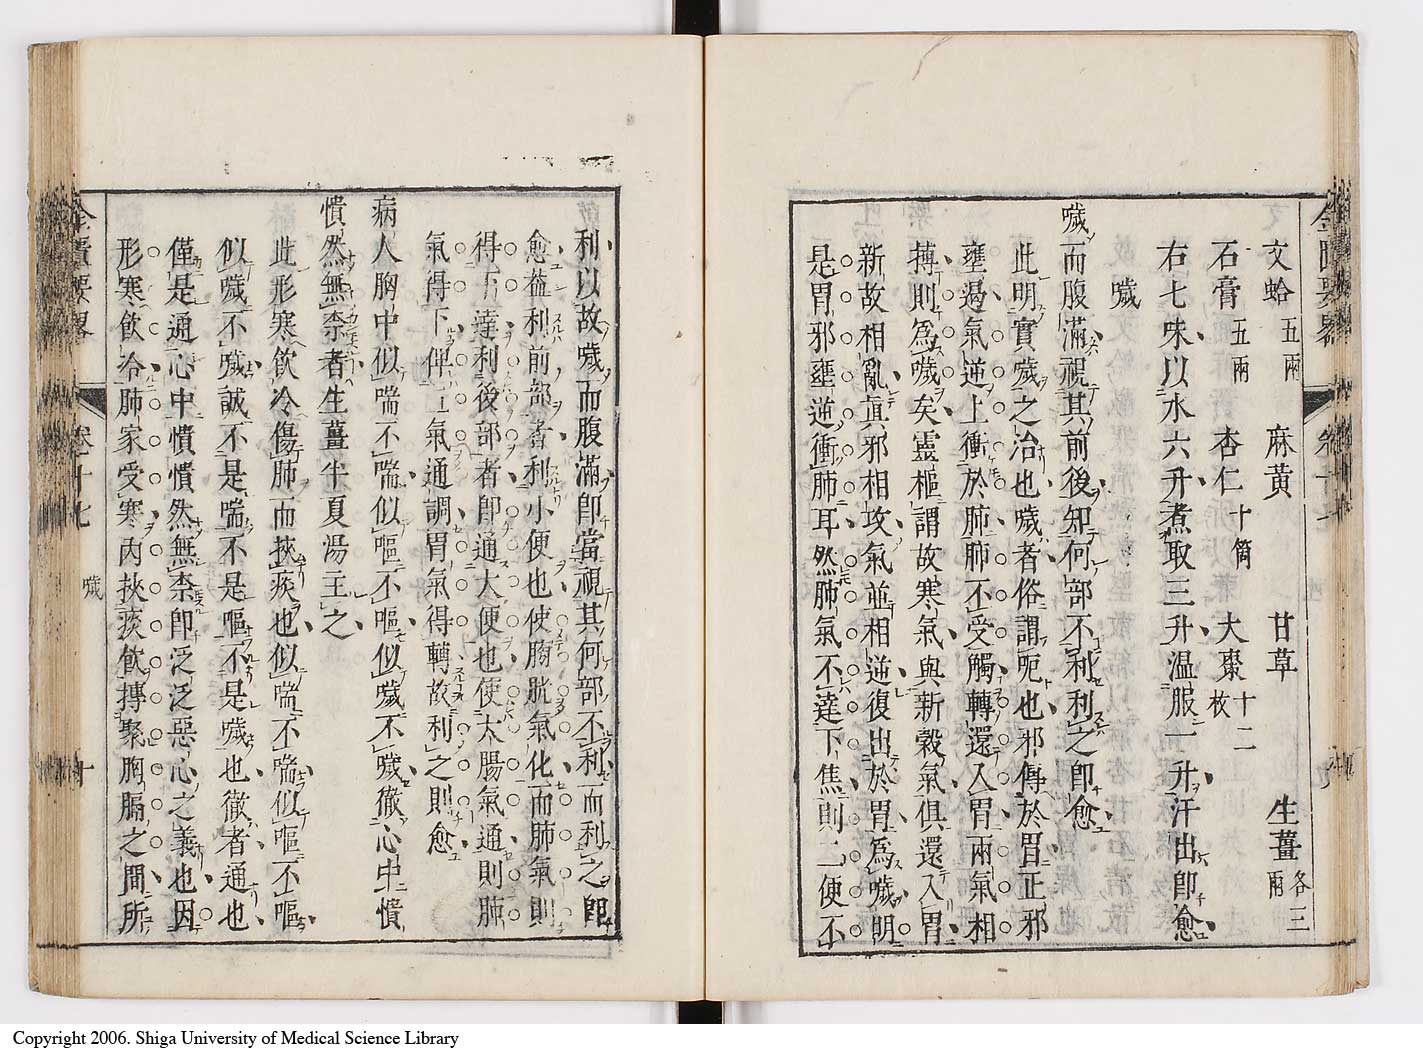 文蛤五兩 麻黃 甘草 生薑各三兩
石膏五兩 杏仁十箇 大棗十二枚
右七味以水六升煮取三升温服一升汗出卽愈
噦
噦而腹滿視其前後知何部不利利之卽愈
此明實噦之治也噦者俗謂呃也邪傳於胃正邪
壅遏氣逆上衝於肺肺不受觸轉還入胃兩氣相
搏則爲噦矣靈樞謂故寒氣與新穀氣俱還入胃
新故相亂眞邪相攻氣並相逆復出於胃爲噦明
是胃邪壅逆衝肺耳然肺氣不達下焦則二便不
利以故噦而腹滿卽當視其何部不利而利之卽
愈葢利前部者利小便也使膀胱氣化而肺氣則
得下達利後部者卽通大便也使大腸氣通則肺
氣得下俾氣通調胃氣得轉故利之則愈
病人胸中似喘不喘似嘔不嘔似噦不噦徹心中憒
憒然無柰者生薑半夏湯主之
此形寒飲冷傷肺而挾痰也似喘不喘似嘔不嘔
似噦不噦誠不是喘不是嘔不是噦也徹者通也
僅是通心中憒憒然無柰卽泛泛惡心之義也因
形寒飲冷肺家受寒內挾痰飲摶聚胸膈之間所
金匱要畧 卷十七 噦 十
Copyright 2006. Shiga University of Medical Science Library